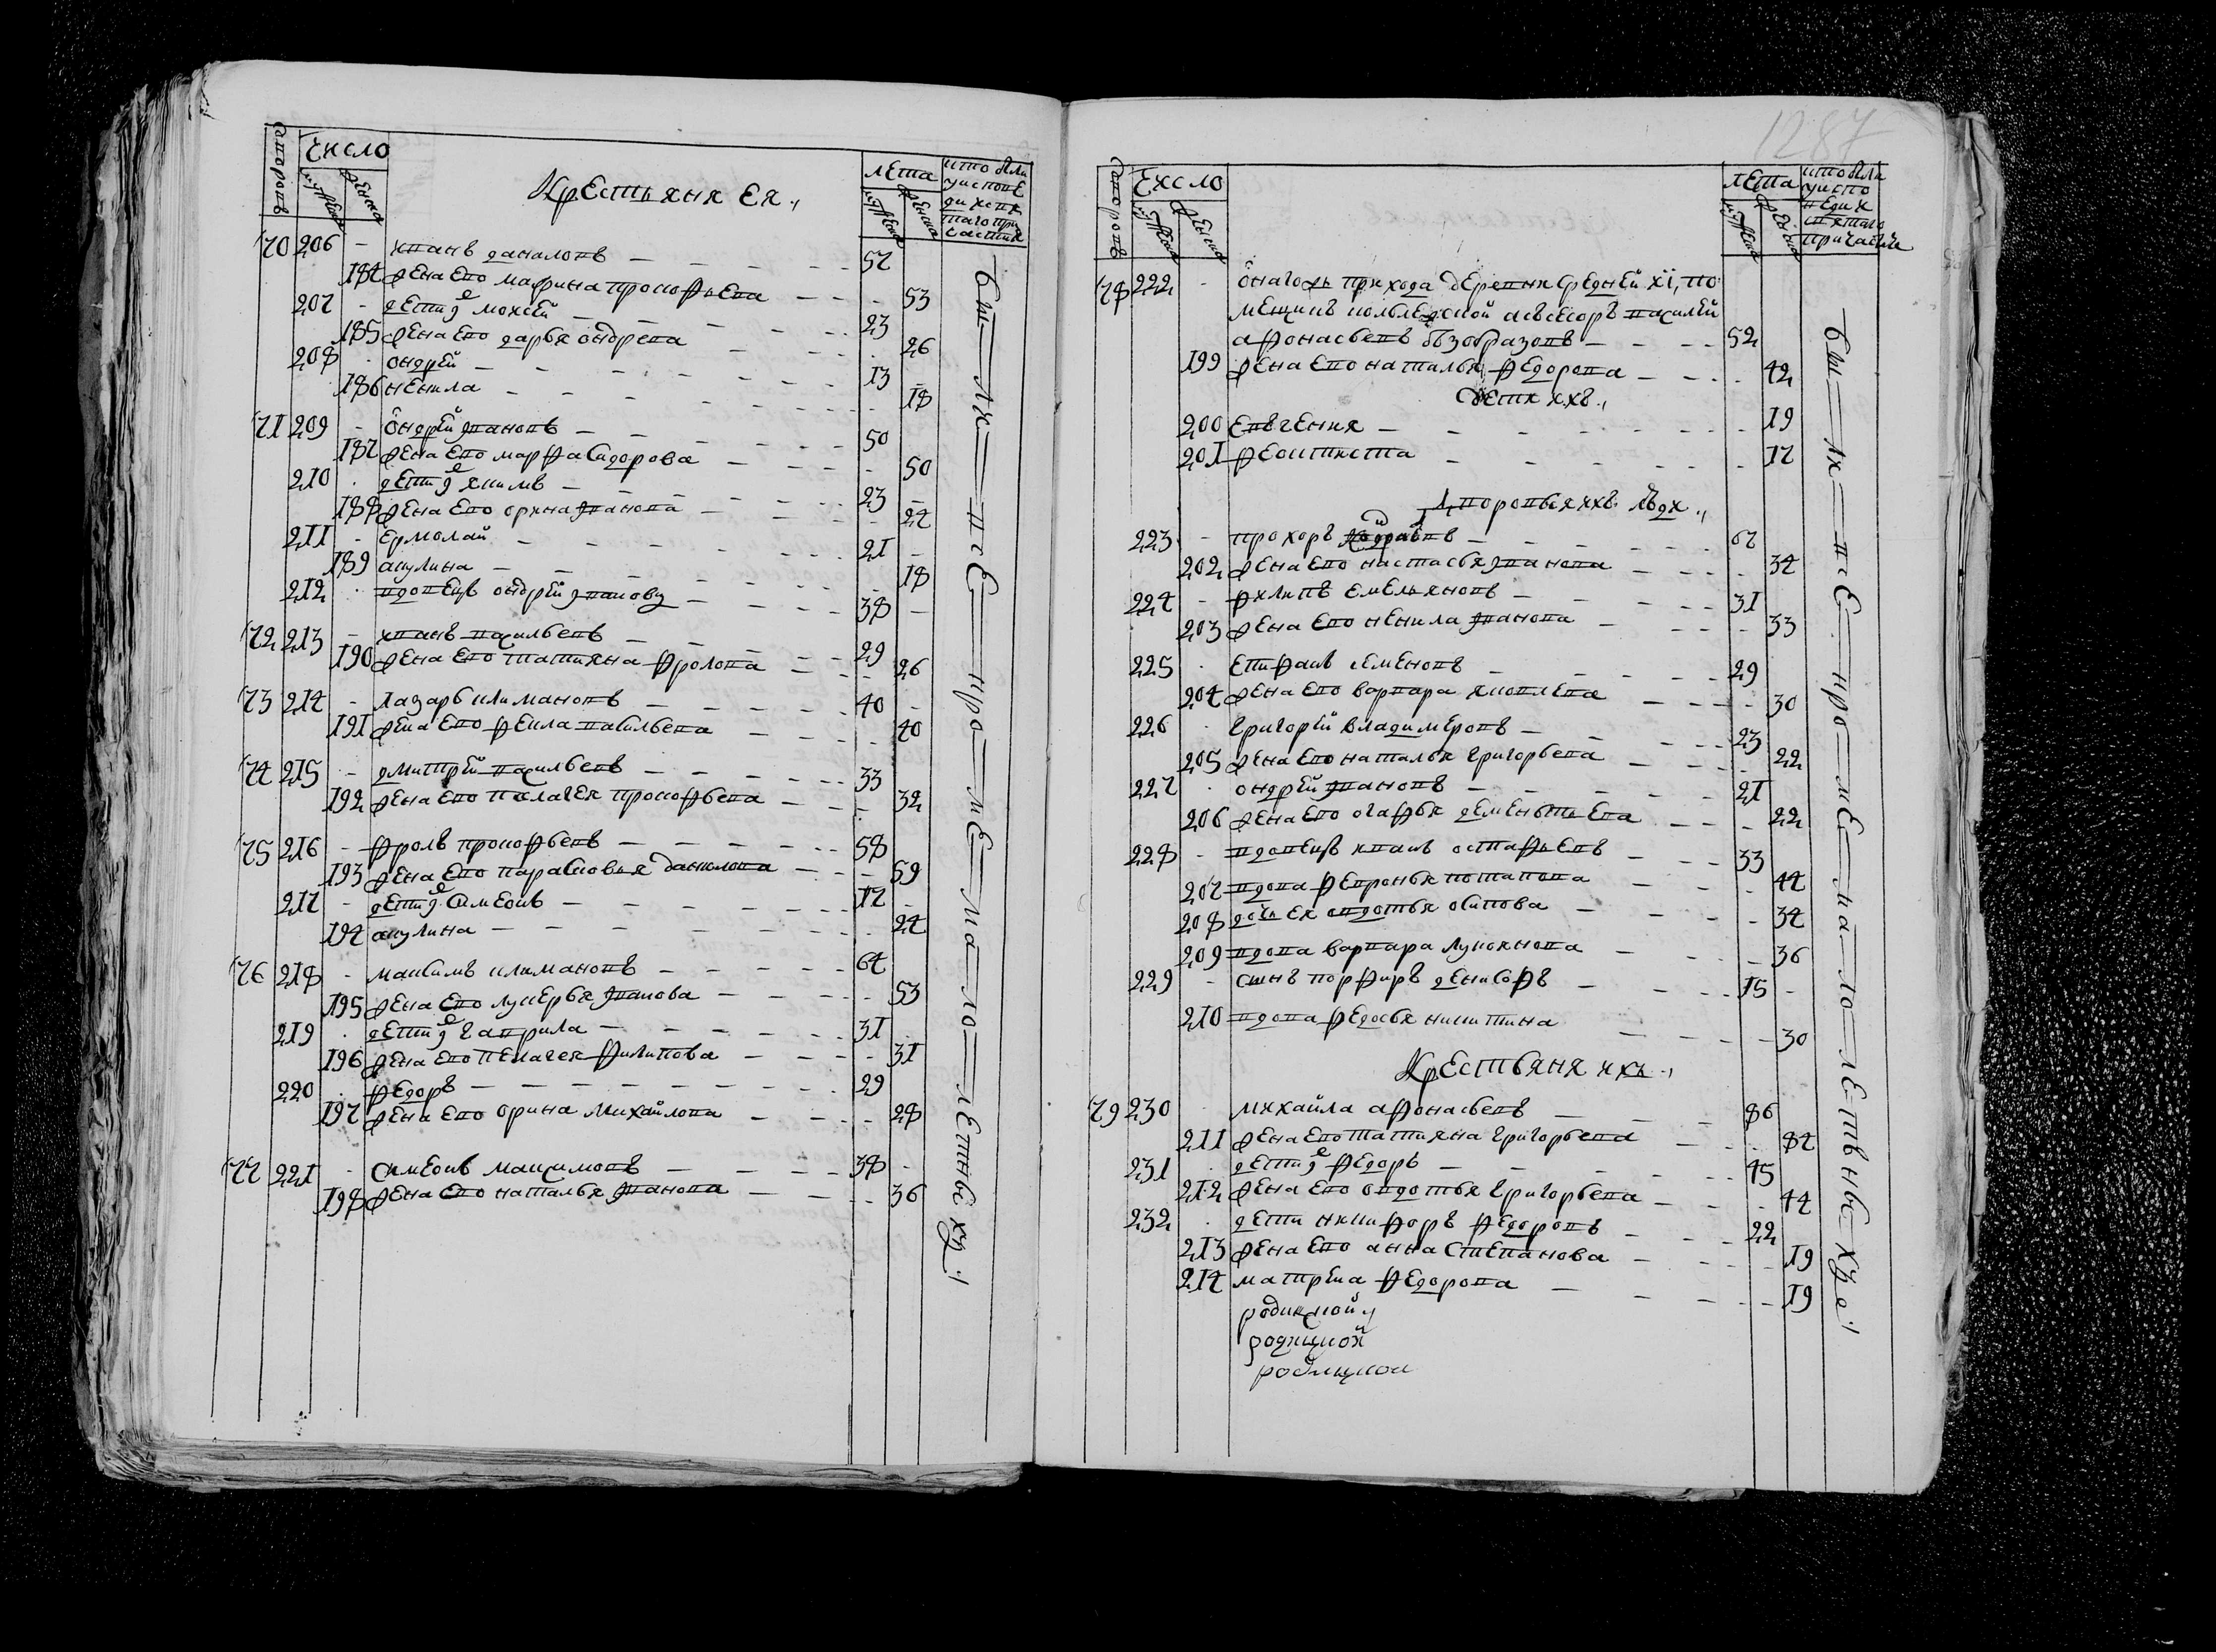 число
дворовъ
мужеска
женска
Крестьяня ея
лета
мужеска
женска
кто были у исповеди и святаго причастия
70 206 - иванъ даниловъ - 57
184 жена его маврина прокофьева - 53
207 - дети моисей - 23
185 жена его дарья ондрева - 26
208 - ондрей - 13
186 ненила - 18
71 209 - ондрей ивановъ - 50
187 жена его марфа сидорова - 50
210 - дети якимъ - 23
188 жена его орина иванова - 24
211 - ермолай - 21
189 акулина - 18
212 - вдовецъ ондрей ивановъ - 38
72 213 - иванъ васильевъ - 29
190 жена его татияна фролова - 26
73 214 - лазарь климановъ - 40
191 жена его фекла васильева - 40
74 215 - дмитрей васильевъ - 33
192 жена его пелагея прокофьева - 32
75 216 - фролъ прокофьевъ - 58
193 жена его парасковья данилова - 59
217 - дети симеонъ - 17
194 акулина - 24
76 218 - максимъ климановъ - 64
195 жена его лукерья иванова - 53
219 - дети гаврила - 31
196 жена его пелагея филипова - 31
220 - федоръ - 29
197 жена его орина михайлова - 28
77 221 - симеонъ максимовъ - 38
198 жена его наталья иванова - 36
бы ли все кро ме мало летныхъ
1287
дворовъ
число
мужеска
женска
лета
мужеска
женска
кто были у исповеди и святаго причастия
78 222 - онагожъ прихода деревни средней по
мещикъ колѣжской асъсесоръ василей
афонасьевъ безобразовъ - 52
199 жена его наталья федорова - 42
дети ихъ
200 евъгения - 19
201 феоктиста - 17
дворовыя ихъ люди
223 - прохоръ - 67
202 жена его настасья иванова - 34
224 - филипъ емельяновъ - 31
203 жена его ненила иванова - 33
225 - епифанъ семеновъ - 29
204 жена его варвара яковлева - 30
226 - григорей владимеровъ - 23
205 жена его наталья григорьева - 22
227 - ондрей ивановъ - 21
206 жена его огафья дементьева - 22
228 - вдовецъ иванъ остафьевъ - 33
207 вдова февронья потапова - 44
208 дочь ея овдотья осипова - 34
209 вдова варвара лукоянова - 36
229 - сынъ порфиръ денисофъ - 15
210 вдова федосья никитина - 30
Крестьяня ихъ
79 230 - михайла афонасьевъ - 86
211 жена его татияна григорьева - 84
231 - дети федоръ - 45
212 жена его овдотья григорьева - 44
232 - дети никифоръ федоровъ - 22
213 жена его анна степанова - 19
214 матрена федорова - 19
бы ли все кро ме мало летъныхъ